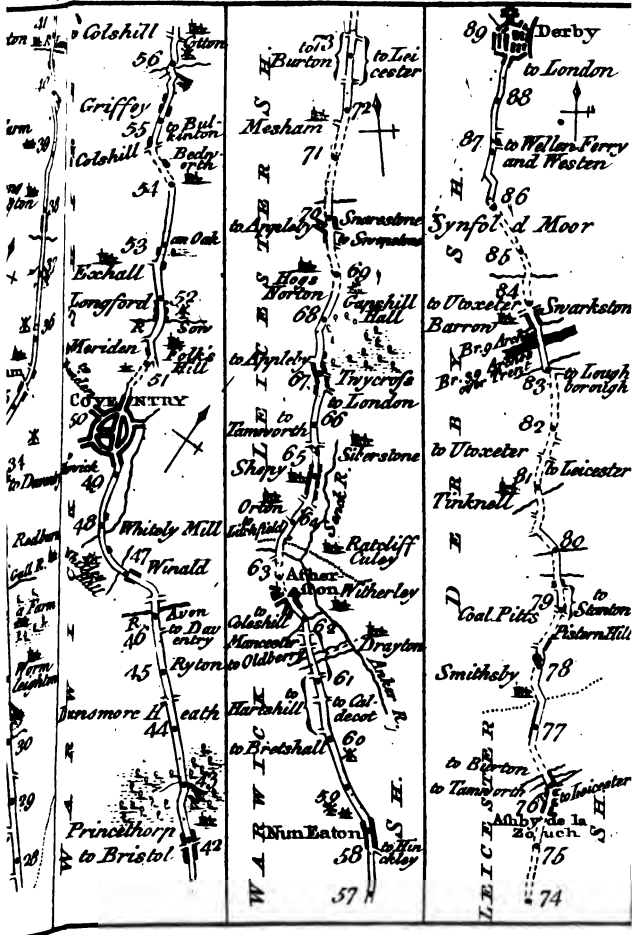 41
ton
40
arm
39
ton
38
37
36
34
to Daventry
Redburn
Gall R.
a Farm
Worm
leighton
30
29
28
Colshill
Cotton
56
Griffey
55
to Bul-
kinton
Colshill
Bedw-
orth
54
53
an Oak
Exhall
Longford
52
R
Sow
Meriden
Folk's
Hill
51
COVENTRY
50
49
48
Whitely Mill
47
Winald
R
Avon
46
to Dav
entry
45
Ryton
Dunsmore Heath
44
43
Princethorp
to Bristol
42
WARWICK
to
Burton
73
to Lei
cester
72
Mesham
71
70
to Appleby
Snarestone
to Swepstone
69
Hogs
Norton
Gapshill
Hall
68
to Appleby
67
Twycross
to London
66
to
Tamworth
65
Shepy
Siberstone
Orton
to
Lichfield
64
Senck R.
Ratcliff
Culey
63
Ather
ston
Witherley
to
Coleshill
62
Mancester
to Oldberry
Drayton
61
Anker R.
to
Hartshill
to Cal-
decot
60
to Bretshall
59
Nun Eaton
58
to Hin
ckley
57
LEICESTER SH.
WARWICK SH.
89
Derby
to London
88
87
to Wellen Ferry
and Westen
86
Synfold Moor
85
84
to Utoxeter
Swarkston
Barrow
Br. 9 Arches
Br. 29 Arches
over Trent
83
to Lough
borough
82
to Utoxeter
to Leicester
81
Tinknell
80
79
to
Stanton
Coal Pitts
Pistern Hill
78
Smithsby
77
to Burton
to Tamworth
to Leicester
76
Ashby de la
Zouch
75
74
DERBY SH.
LEICESTER SH.